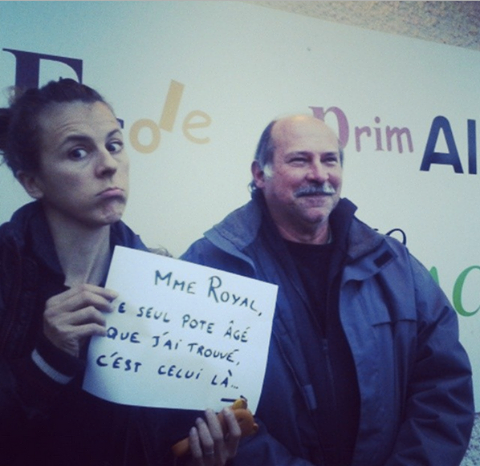 Ecole
primAI
MME ROYAL,
E SEUL POTE ÂGÉ
QUE J'AI TROUVÉ,
C'EST CELUI LÀ...